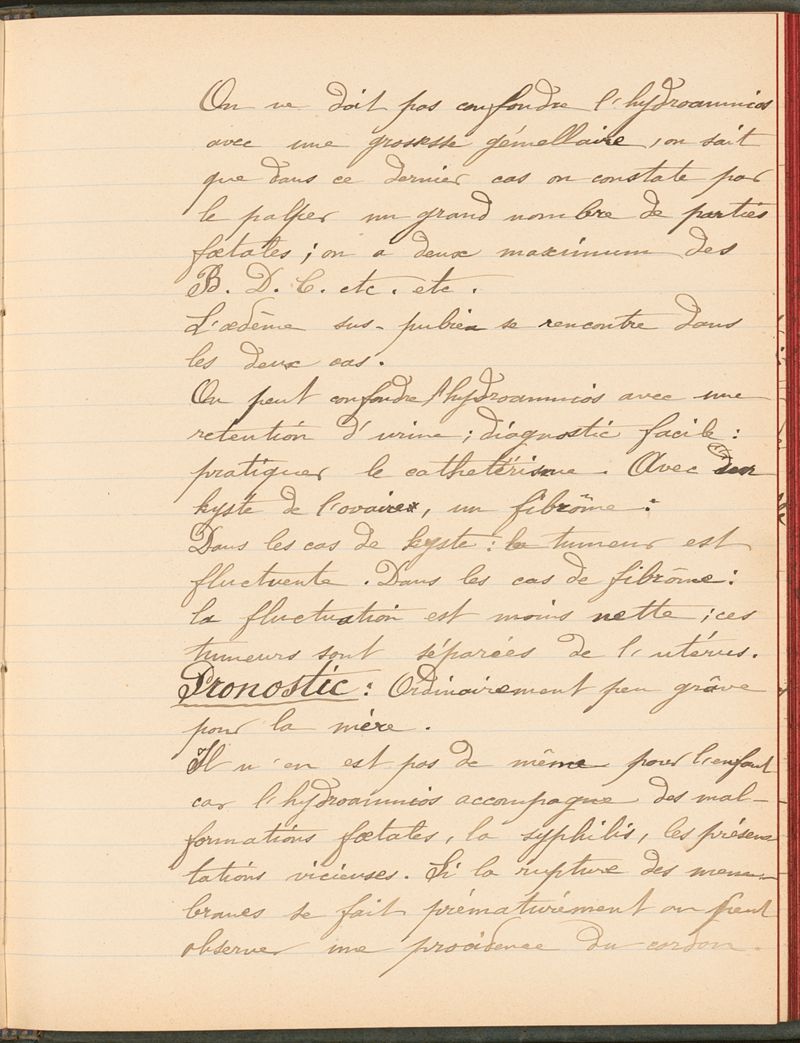 On ne doit pas confondre l'hydroamnios
avec une grossesse gémellaire, on sait
que dans ce dernier cas on constate par
le palper un grand nombre de parties
fœtales ; on a deux maximum des
B. D. C. etc. etc.
L'œdème sus-pubien se rencontre dans
les deux cas.
On peut confondre l'hydroamnios avec une
retention d'urine ; diagnostic facile :
pratiquer le cathetérisme. Avec
kyste de l'ovaire, un fibrôme :
Dans les cas de kyste : la tumeur est
fluctuente. Dans les cas de fibrôme :
la fluctuation est moins nette ; ces
tumeurs sont séparées de l'utérus.
Pronostic : Ordinairement peu grâve
pour la mère.
Il n'en est pas de même pour l'enfant
car l'hydroamnios accompagne des mal-
formations fœtales, la syphilis, les présen-
tations vicieuses. Si la rupture des mem-
branes se fait prématurément on peut
observer une procidence du cordon.